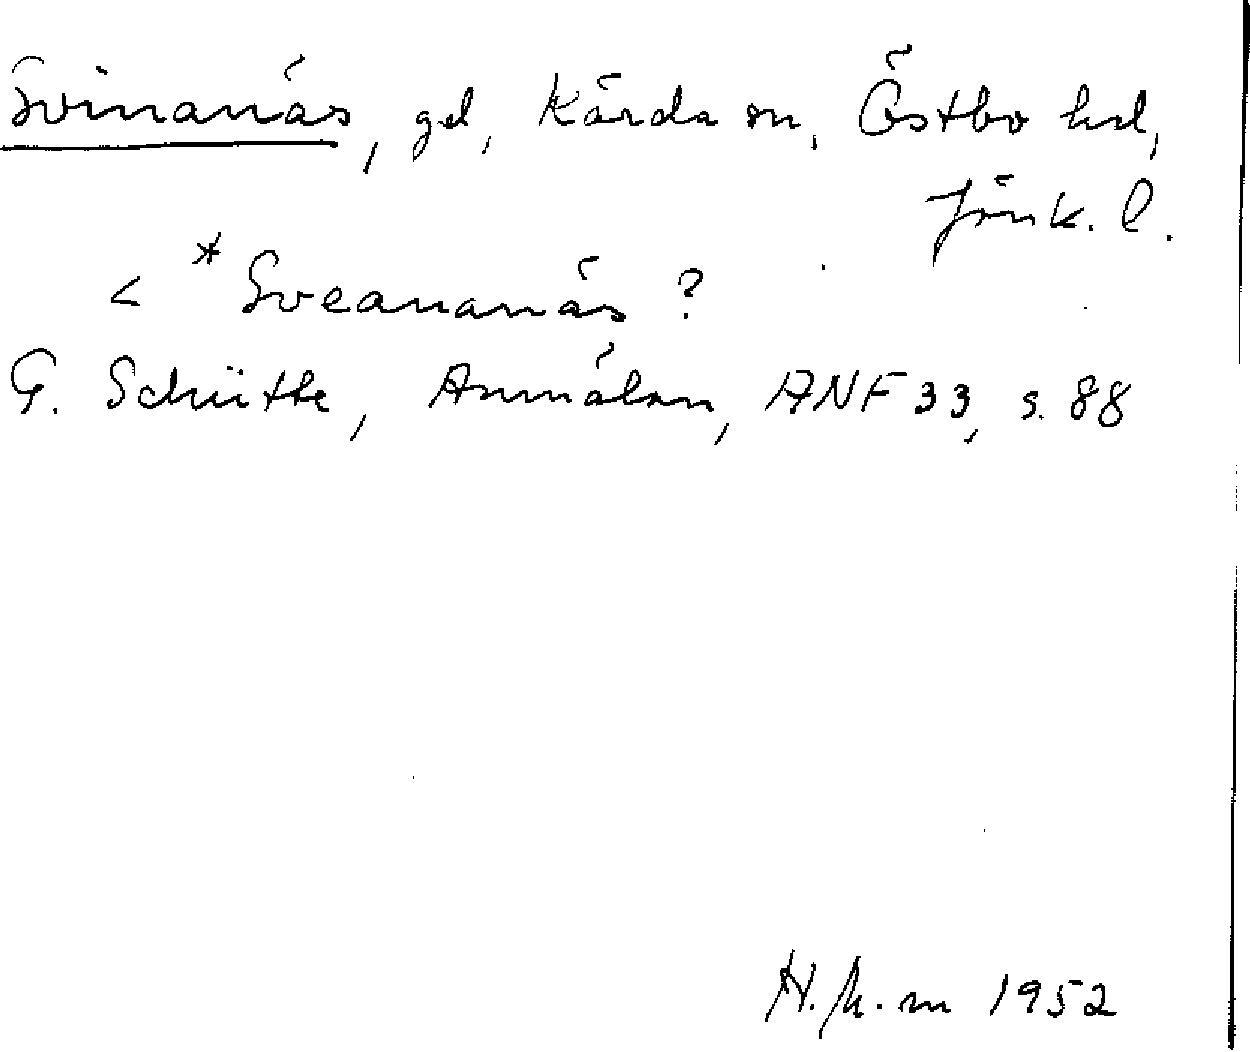 Svinanäs, gd, Kärda sn, Östbo hd,
Jönk. l.
< *Sveananäs?
G. Schütte, Anmälan, ANF 33, s. 88
1952